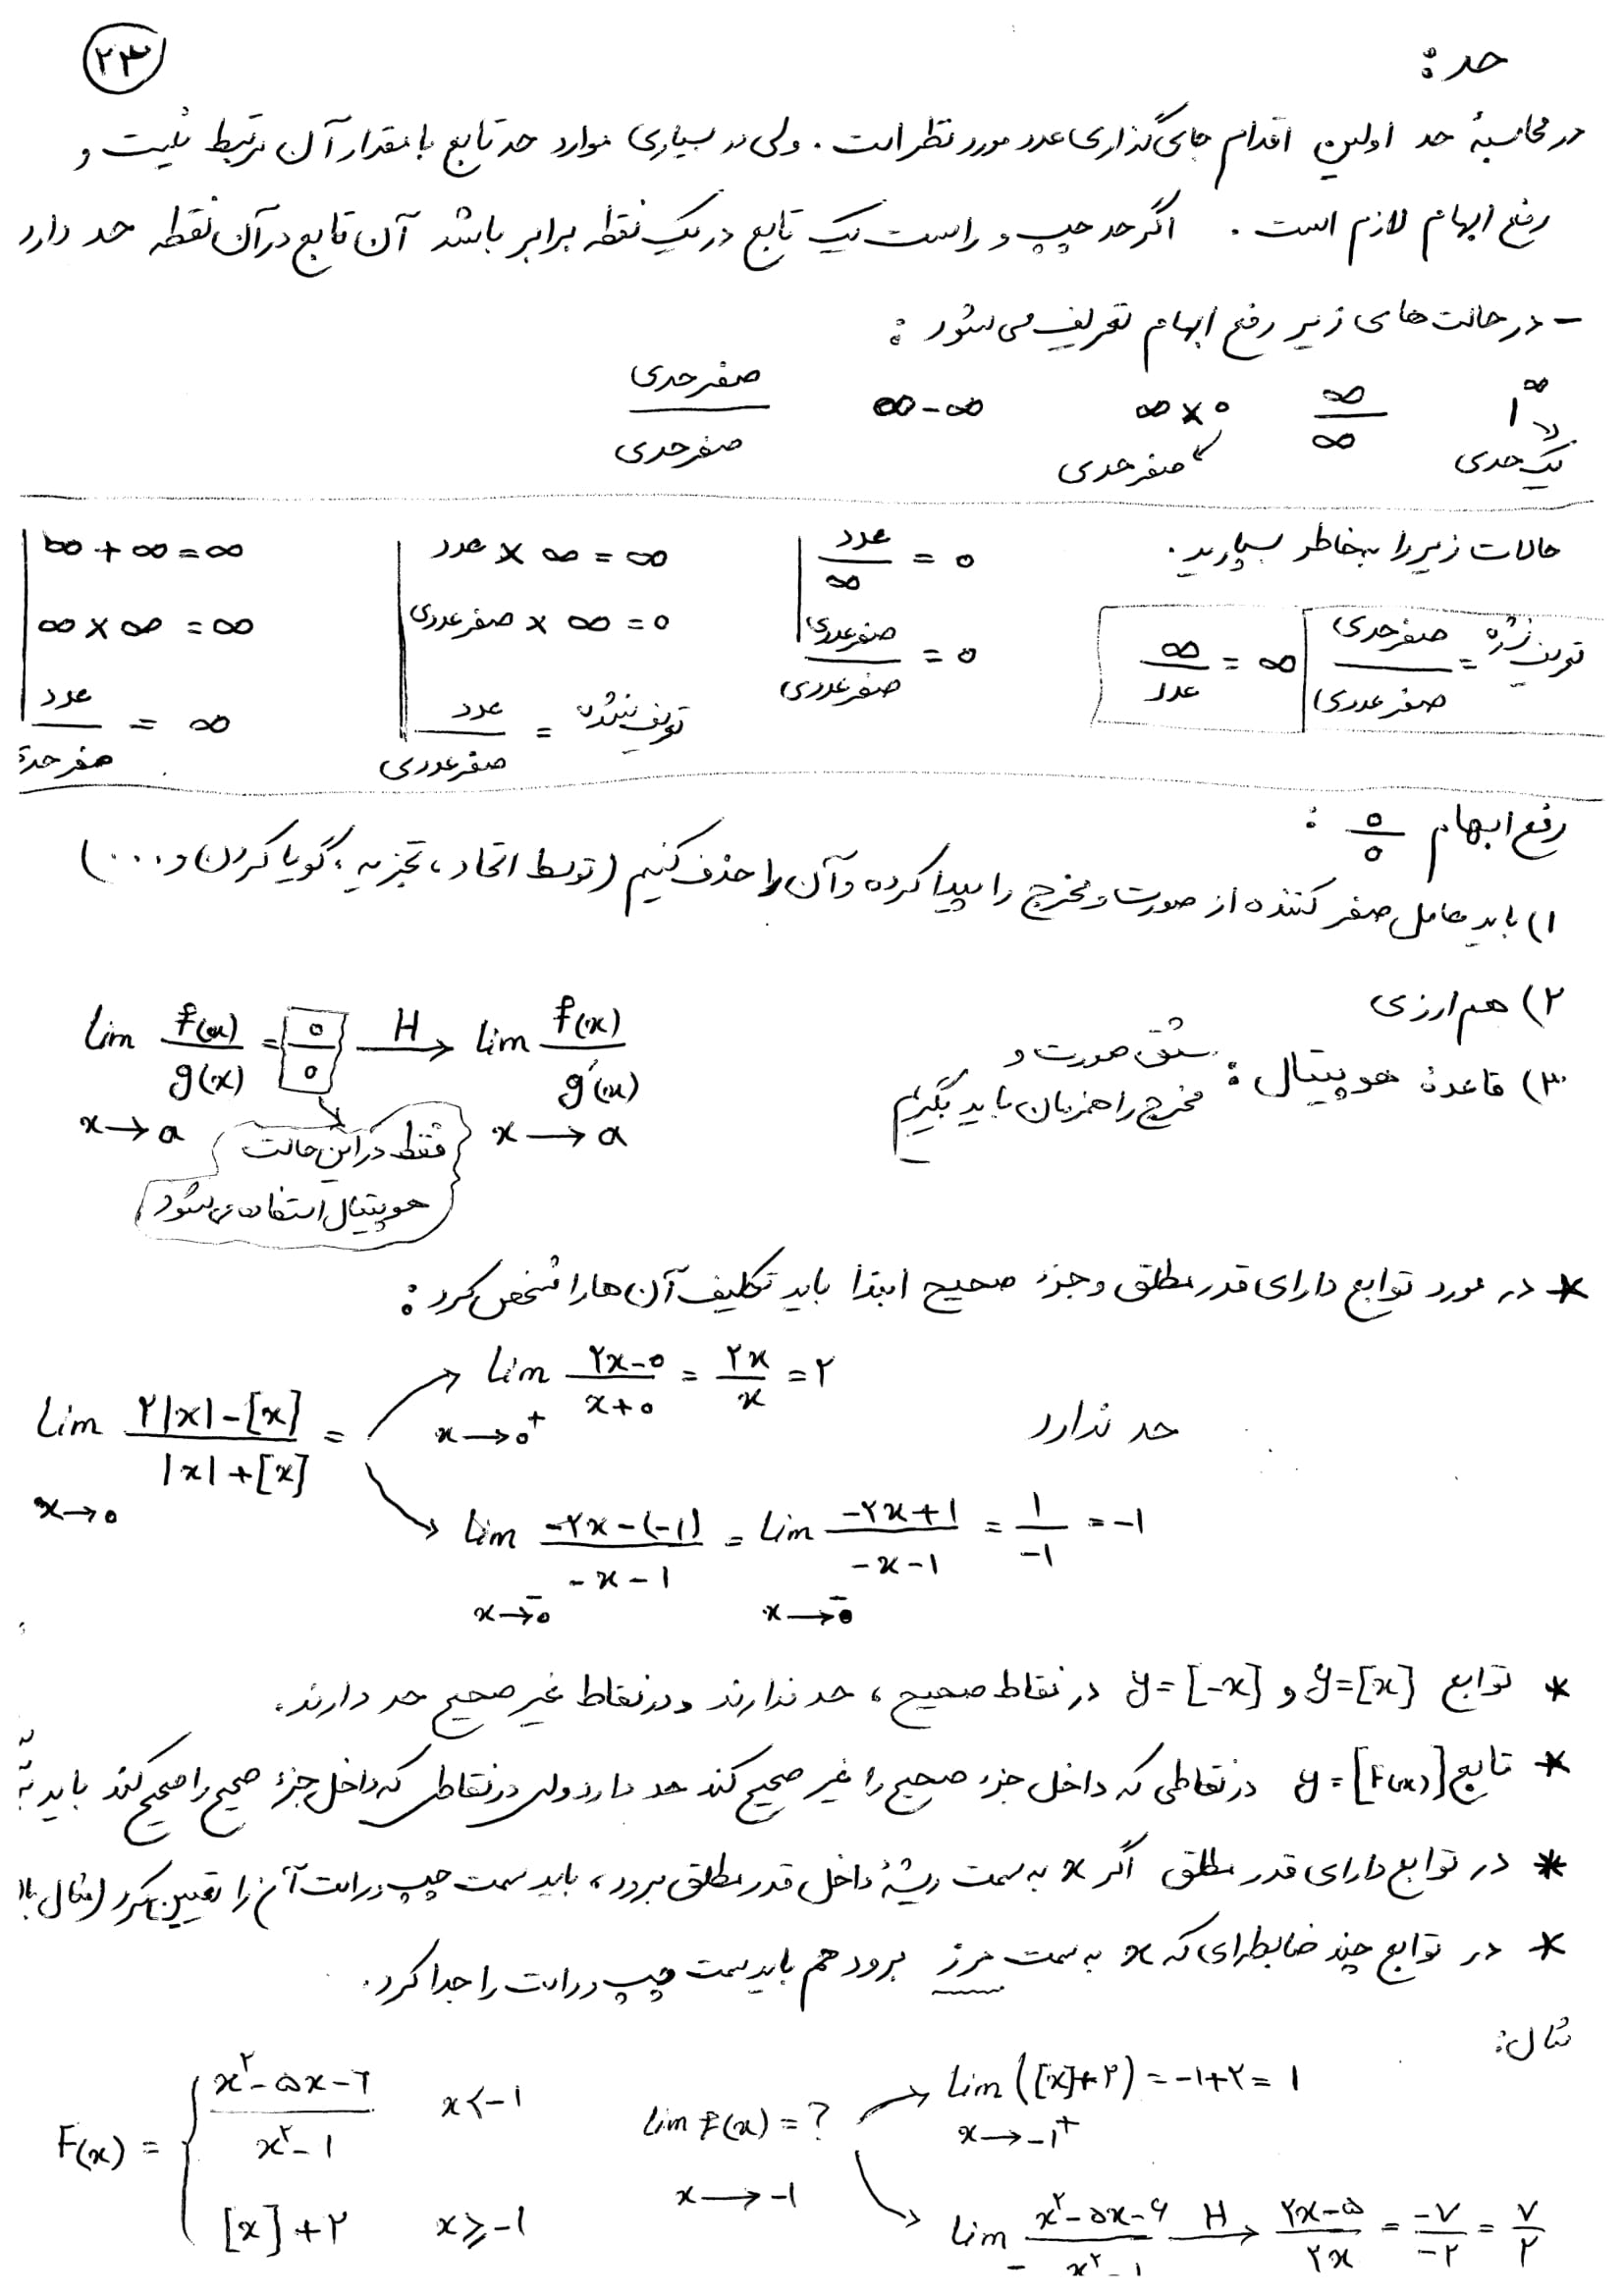 ۲۳
حد :
در محاسبهٔ حد اولین اقدام جای گذاری عدد مورد نظر است . ولی در بسیاری موارد حد تابع با مقدار آن مرتبط نیست و
رفع ابهام لازم است . اگر حد چپ و راست یک تابع در یک نقطه برابر باشد آن تابع در آن نقطه حد دارد
- در حالت های زیر رفع ابهام تعریف می شود :
صفر حدی / صفر حدی    ∞ - ∞    ∞ × ۰    ∞ / ∞    ۱^∞
صفر حدی    یک حدی
حالات زیر را به خاطر بسپارید .
عدد / ∞ = ۰    عدد × ∞ = ∞    ∞ + ∞ = ∞
تعریف نشده = صفر حدی / صفر عددی    ∞ / عدد = ∞    صفر عددی / صفر عددی = ۰    صفر عددی × ∞ = ۰    ∞ × ∞ = ∞
عدد / صفر عددی = تعریف نشده    عدد / صفر حدی = ∞
رفع ابهام ۰/۰ :
۱) باید عامل صفر کننده از صورت و مخرج را پیدا کرده و آن را حذف کنیم (توسط اتحاد ، تجزیه ، گویا کردن و ...)
۲) هم ارزی
۳) قاعدهٔ هوپیتال : مشتق صورت و
مخرج را همزمان باید بگیریم
Lim f(x)/g(x) = ۰/۰ —H→ Lim f(x)/g'(x)
x→a    x→a
فقط در این حالت
هوپیتال استفاده می شود
* در مورد توابع دارای قدر مطلق و جزء صحیح ابتدا باید تکلیف آن ها را مشخص کرد :
Lim (۲x-۰)/(x+۰) = ۲x/x = ۲
x→۰⁺
Lim (۲|x|-[x])/(|x|+[x]) =
x→۰
حد ندارد
Lim (-۲x-(-۱))/(-x-۱) = Lim (-۲x+۱)/(-x-۱) = ۱/-۱ = -۱
x→۰⁻    x→۰⁻
* توابع y=[x] و y=[-x] در نقاط صحیح ، حد ندارند و در نقاط غیر صحیح حد دارند .
* تابع y=[F(x)] در نقاطی که داخل جزء صحیح را غیر صحیح کند حد دارد ولی در نقاطی که داخل جزء صحیح را صحیح کند باید
* در توابع دارای قدر مطلق اگر x به سمت ریشهٔ داخل قدر مطلق برود ، باید سمت چپ و راست آن را تعیین کرد (مثال بالا
* در توابع چند ضابطه ای که x به سمت مرز برود هم باید سمت چپ و راست را جدا کرد .
مثال :
F(x) = { (x²-۵x-۶)/(x²-۱)    x<-۱
[x]+۲    x≥-۱
Lim f(x) = ?
x→-۱
Lim ([x]+۲) = -۱+۲ = ۱
x→-۱⁺
Lim (x²-۵x-۶)/(x²-۱) —H→ (۲x-۵)/۲x = -۷/-۲ = ۷/۲